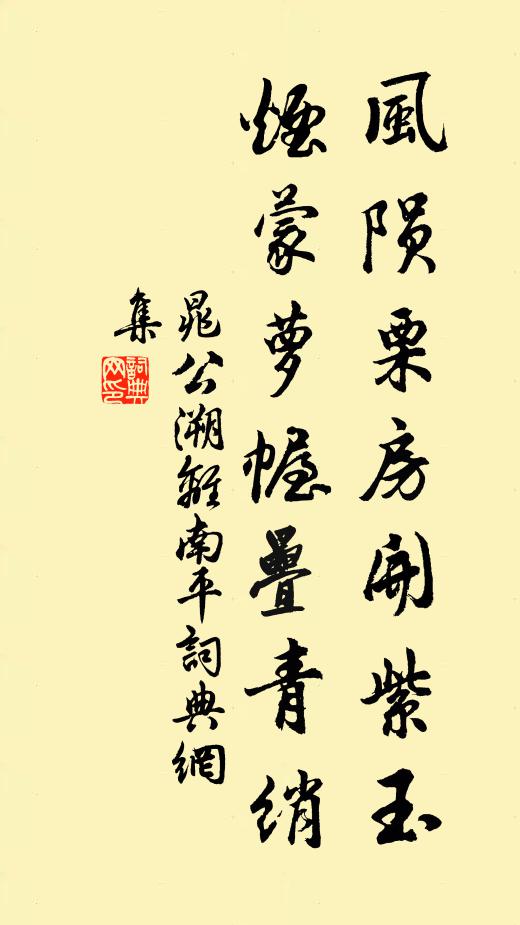 風隕栗房開紫玉
煙蒙萝幄疊青绡
晁公溯離南平詞典網
集
詞典網印